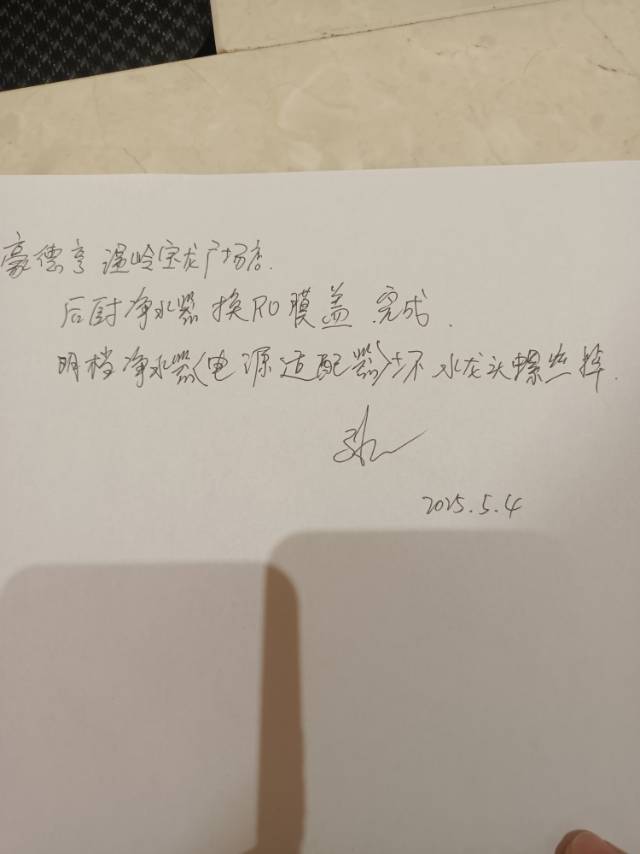 豪德亨 温岭宝龙广场店.
后厨净水器换RO膜盖 完成.
明档净水器(电源适配器)坏 水龙头螺丝掉.
2025.5.4